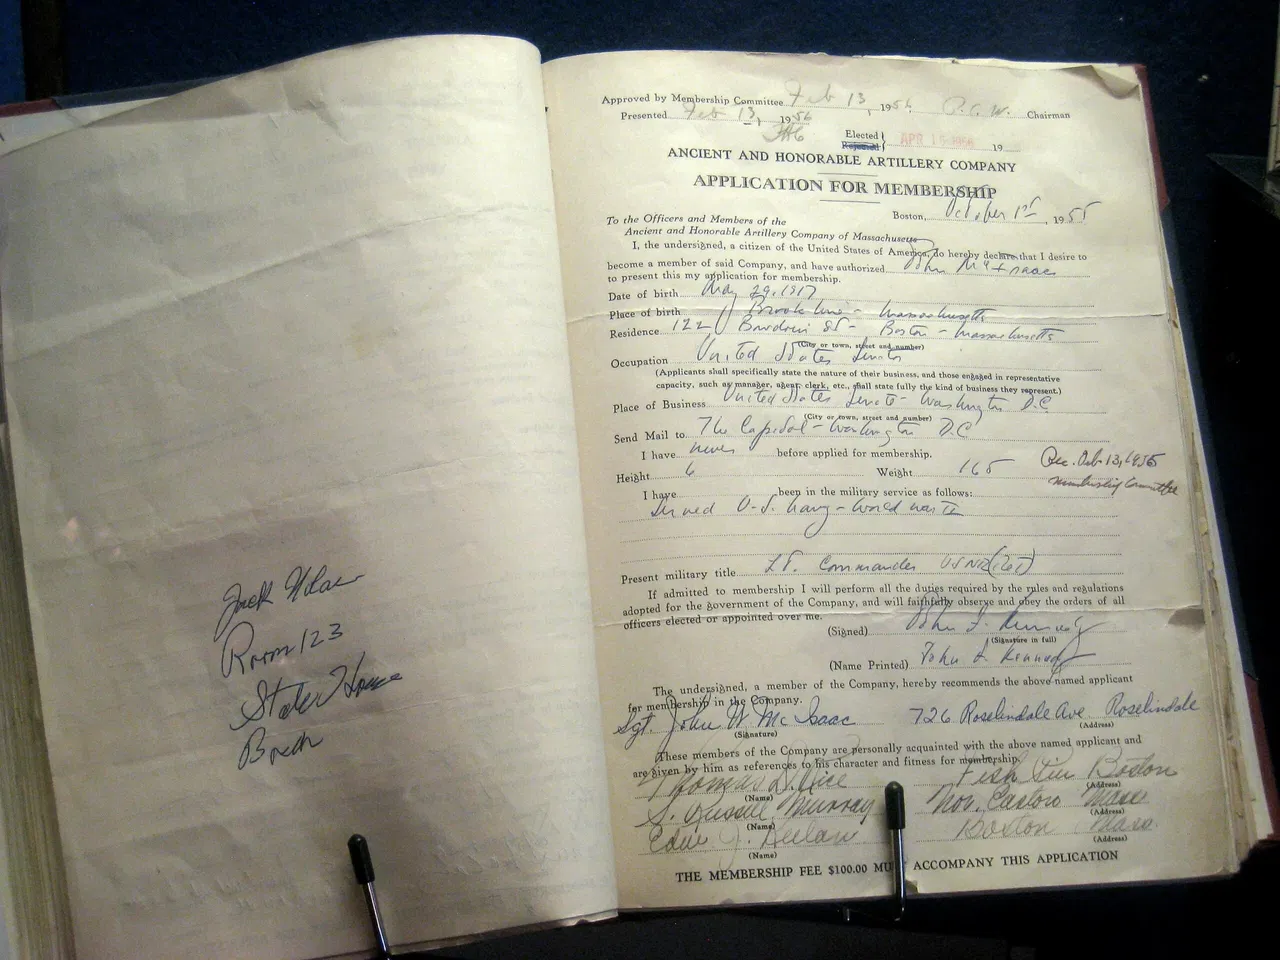 Jack
Room 123
State House
Approved by Membership Committee Feb 13, 1956 P.C.W. Chairman
Presented Feb 13, 1956
Elected
Rejected
APR 1956 19
ANCIENT AND HONORABLE ARTILLERY COMPANY
APPLICATION FOR MEMBERSHIP
Boston, October 1st, 1955
To the Officers and Members of the
Ancient and Honorable Artillery Company of Massachusetts
I, the undersigned, a citizen of the United States of America, do hereby declare that I desire to
become a member of said Company, and have authorized John McIsaac
to present this my application for membership.
Date of birth May 29, 1917
Place of birth Brookline - Massachusetts
Residence 122 Bowdoin St - Boston - Massachusetts
(City or town, street and number)
Occupation United States Senator
(Applicants shall specifically state the nature of their business, and those engaged in representative
capacity, such as manager, agent, clerk, etc., shall state fully the kind of business they represent.)
Place of Business United States Senate - Washington D.C.
(City or town, street and number)
Send Mail to The Capitol - Washington D.C
I have never before applied for membership.
Height 6 Weight 165
Rec. Oct. 13, 1955
Membership Committee
I have been in the military service as follows:
Served U.S. Navy - World War II
Present military title Lt. Commander USNR (ret)
If admitted to membership I will perform all the duties required by the rules and regulations
adopted for the government of the Company, and will faithfully observe and obey the orders of all
officers elected or appointed over me.
(Signed) John F. Kennedy
(Signature in full)
(Name Printed) John F. Kennedy
The undersigned, a member of the Company, hereby recommends the above named applicant
for membership in the Company.
Sgt. John W. McIsaac 726 Roselindale Ave. Roselindale
(Signature) (Address)
These members of the Company are personally acquainted with the above named applicant and
are given by him as references to his character and fitness for membership.
Thomas D. Rice Fish Pier Boston
(Name) (Address)
S. Russell Murray No. Easton Mass
(Name) (Address)
J. Boston Mass.
(Name) (Address)
THE MEMBERSHIP FEE $100.00 MUST ACCOMPANY THIS APPLICATION